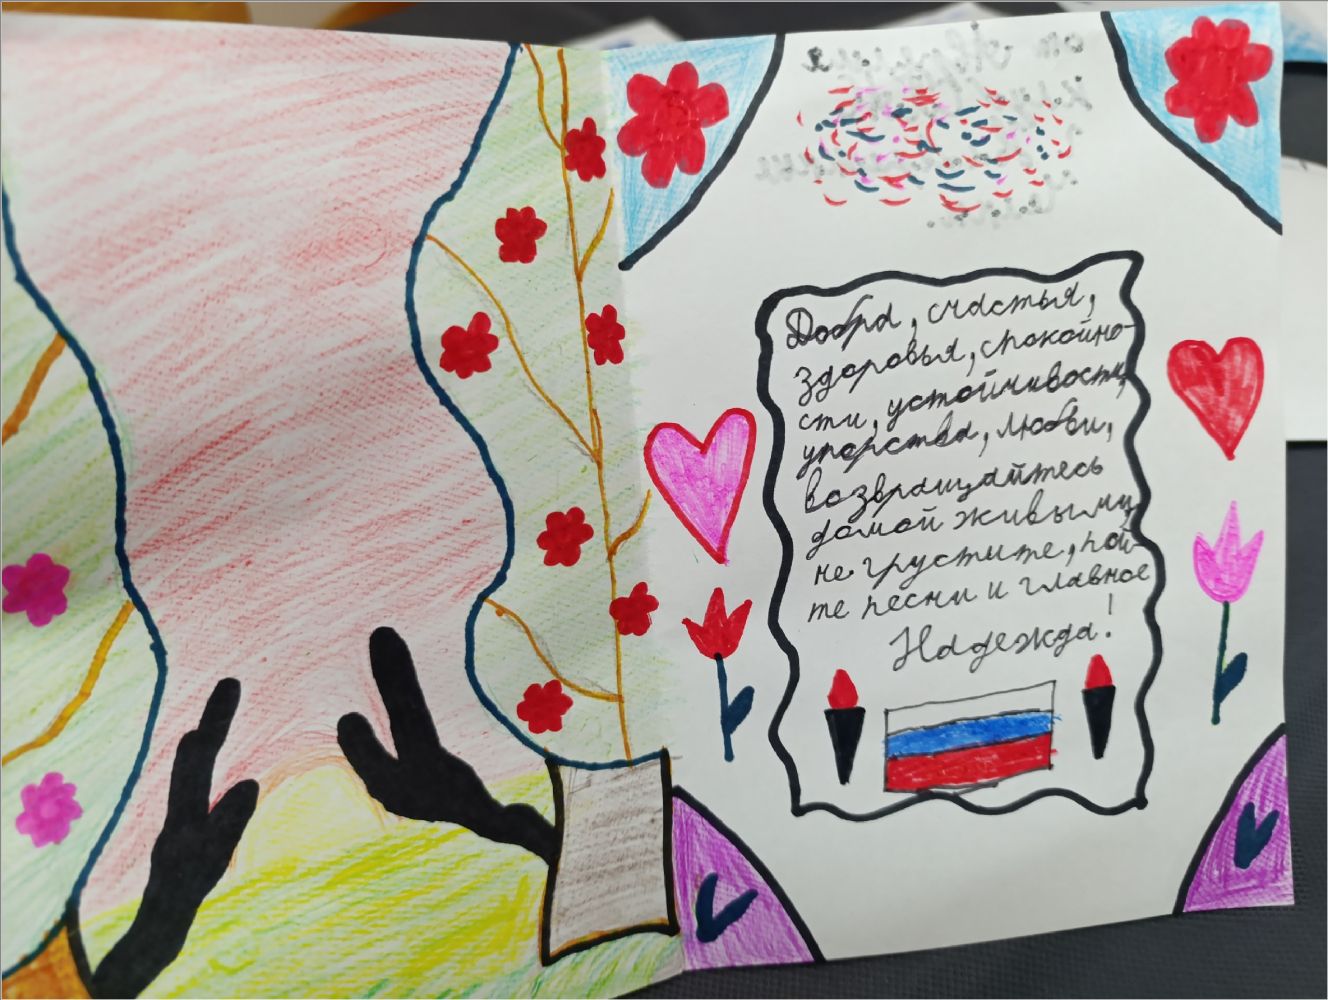 Добра, счастья,
здоровья, спокойно-
сти, устойчивости,
упорства, любви,
возвращайтесь
домой живыми,
не грустите, пой-
те песни и главное
Надежда!